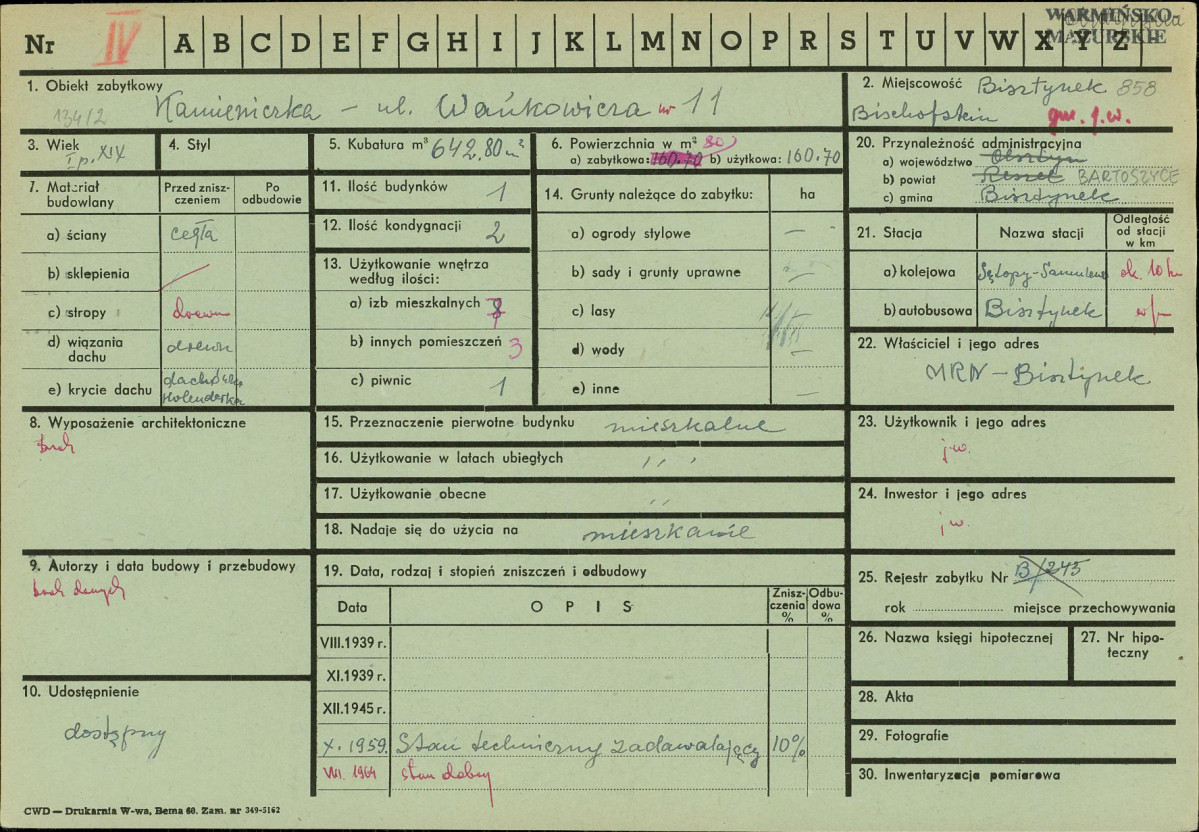 WARMIŃSKO-
MAZURSKIE
Nr IV A B C D E F G H I J K L M N O P R S T U V W X Y Z
1. Obiekt zabytkowy
134/2 Kamieniczka – ul. Wańkowicza nr 11
2. Miejscowość Bisztynek 858
Bischofstein gm. j.w.
3. Wiek
I p. XIX
4. Styl
5. Kubatura m³ 642,80 m³
6. Powierzchnia w m² 80
a) zabytkowa: 160.70 b) użytkowa: 160.70
20. Przynależność administracyjna
a) województwo Olsztyn
b) powiat Reszel BARTOSZYCE
c) gmina Bisztynek
7. Materiał budowlany
Przed zniszczeniem
Po odbudowie
a) ściany cegła
b) sklepienia /
c) stropy drewn
d) wiązania dachu drewn
e) krycie dachu dachówka holenderka
11. Ilość budynków 1
12. Ilość kondygnacji 2
13. Użytkowanie wnętrza
według ilości:
a) izb mieszkalnych
b) innych pomieszczeń 3
c) piwnic 1
14. Grunty należące do zabytku: ha
a) ogrody stylowe —
b) sady i grunty uprawne —
c) lasy
d) wody —
e) inne —
21. Stacja
Nazwa stacji
Odległość od stacji w km
a) kolejowa Sętopy-Samulewo ok. 10 km
b) autobusowa Bisztynek
22. Właściciel i jego adres
MRN – Bisztynek
8. Wyposażenie architektoniczne
brak
15. Przeznaczenie pierwotne budynku mieszkalne
16. Użytkowanie w latach ubiegłych ,, ,
17. Użytkowanie obecne ,,
18. Nadaje się do użycia na mieszkanie
23. Użytkownik i jego adres
j.w.
24. Inwestor i jego adres
j.w.
9. Autorzy i data budowy i przebudowy
brak danych
19. Data, rodzaj i stopień zniszczeń i odbudowy
Data
O P I S
Zniszczenia %
Odbudowa %
VIII.1939 r.
XI.1939 r.
XII.1945 r.
X. 1959. Stan techniczny zadawalający 10%
VIII. 1964 stan dobry
25. Rejestr zabytku Nr B/245
rok miejsce przechowywania
26. Nazwa księgi hipotecznej
27. Nr hipoteczny
28. Akta
29. Fotografie
30. Inwentaryzacja pomiarowa
10. Udostępnienie
dostępny
CWD — Drukarnia W-wa, Bema 60. Zam. nr 349-5162